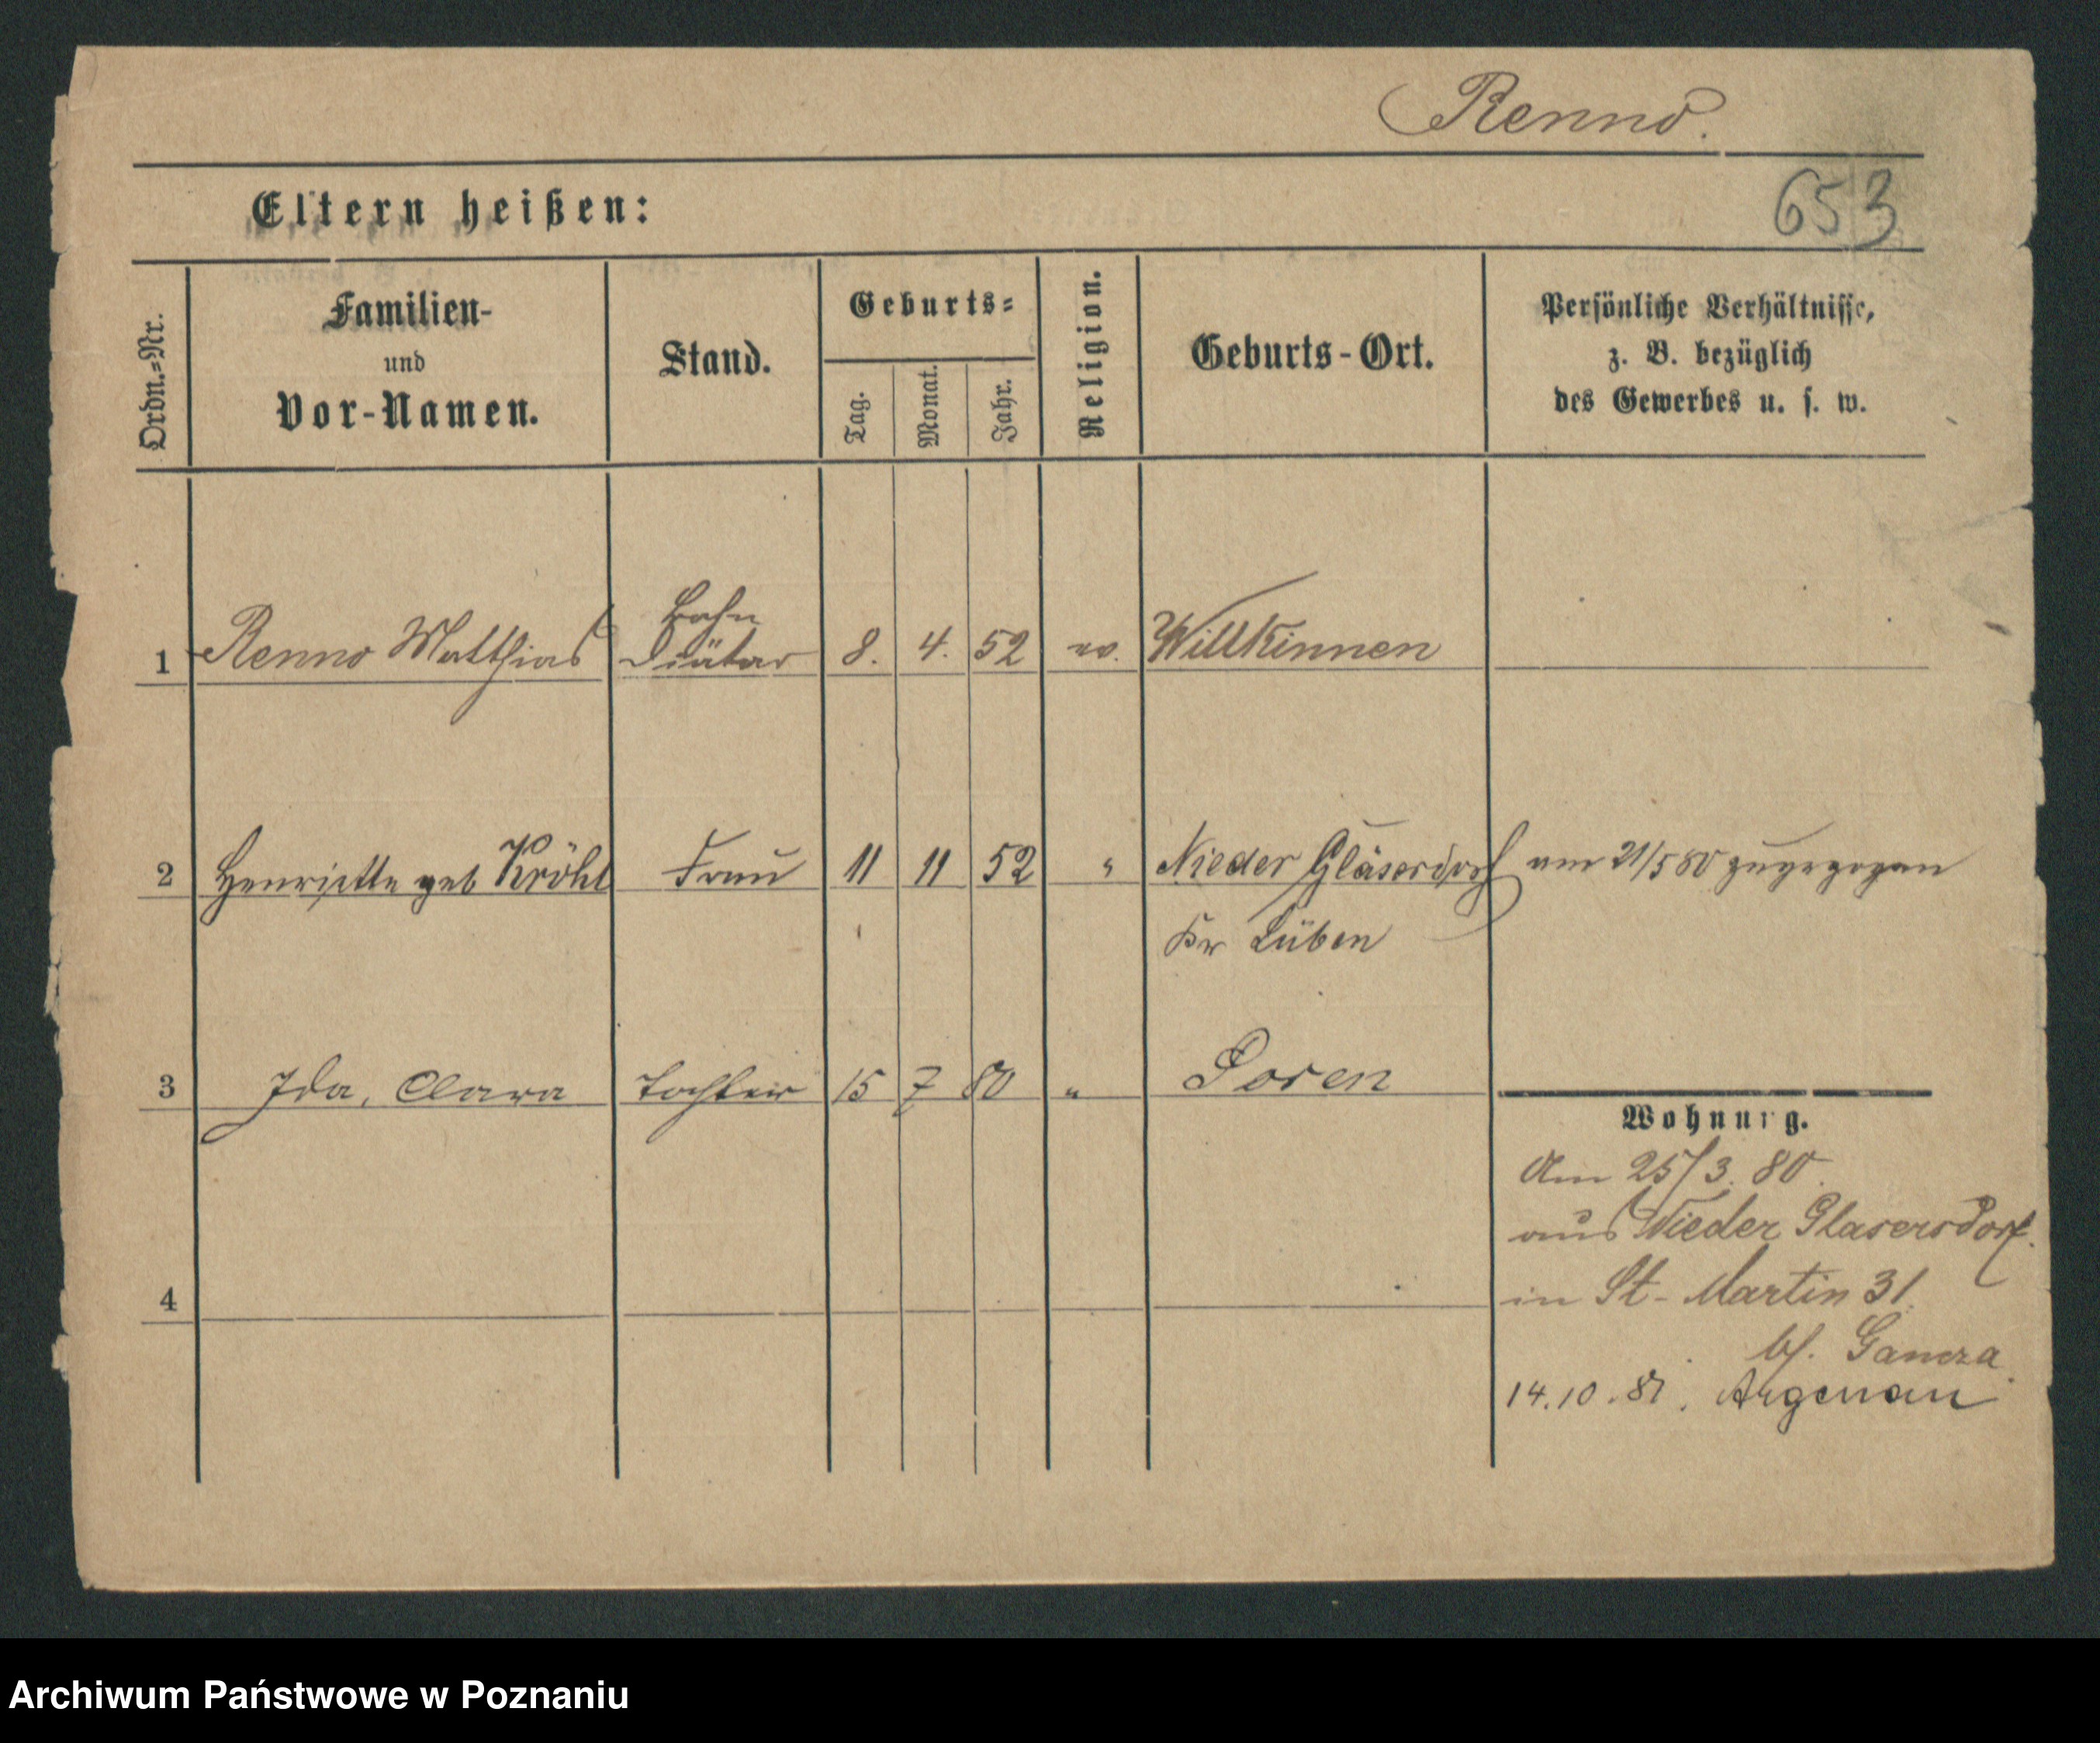 Renno.
653
Eltern heißen:
Ordn.-Nr.
Familien-
und
Vor-Namen.
Stand.
Geburts-
Tag.
Monat.
Jahr.
Religion.
Geburts-Ort.
Persönliche Verhältnisse,
z. B. bezüglich
des Gewerbes u. s. w.
1 Renno Matthias Bahn Diätar 8. 4. 52 ev. Willkinnen
2 Henriette geb Kröhl Frau 11 11 52 " Nieder Gläsersdorf am 21/5 80 zugezogen
Kr Lüben
3 Ida, Clara Tochter 15 7 80 " Posen
Wohnung.
Am 25/3. 80.
aus Nieder Glasersdorf.
in St- Martin 31.
bf.
14.10.81. Argenau
4
Archiwum Państwowe w Poznaniu